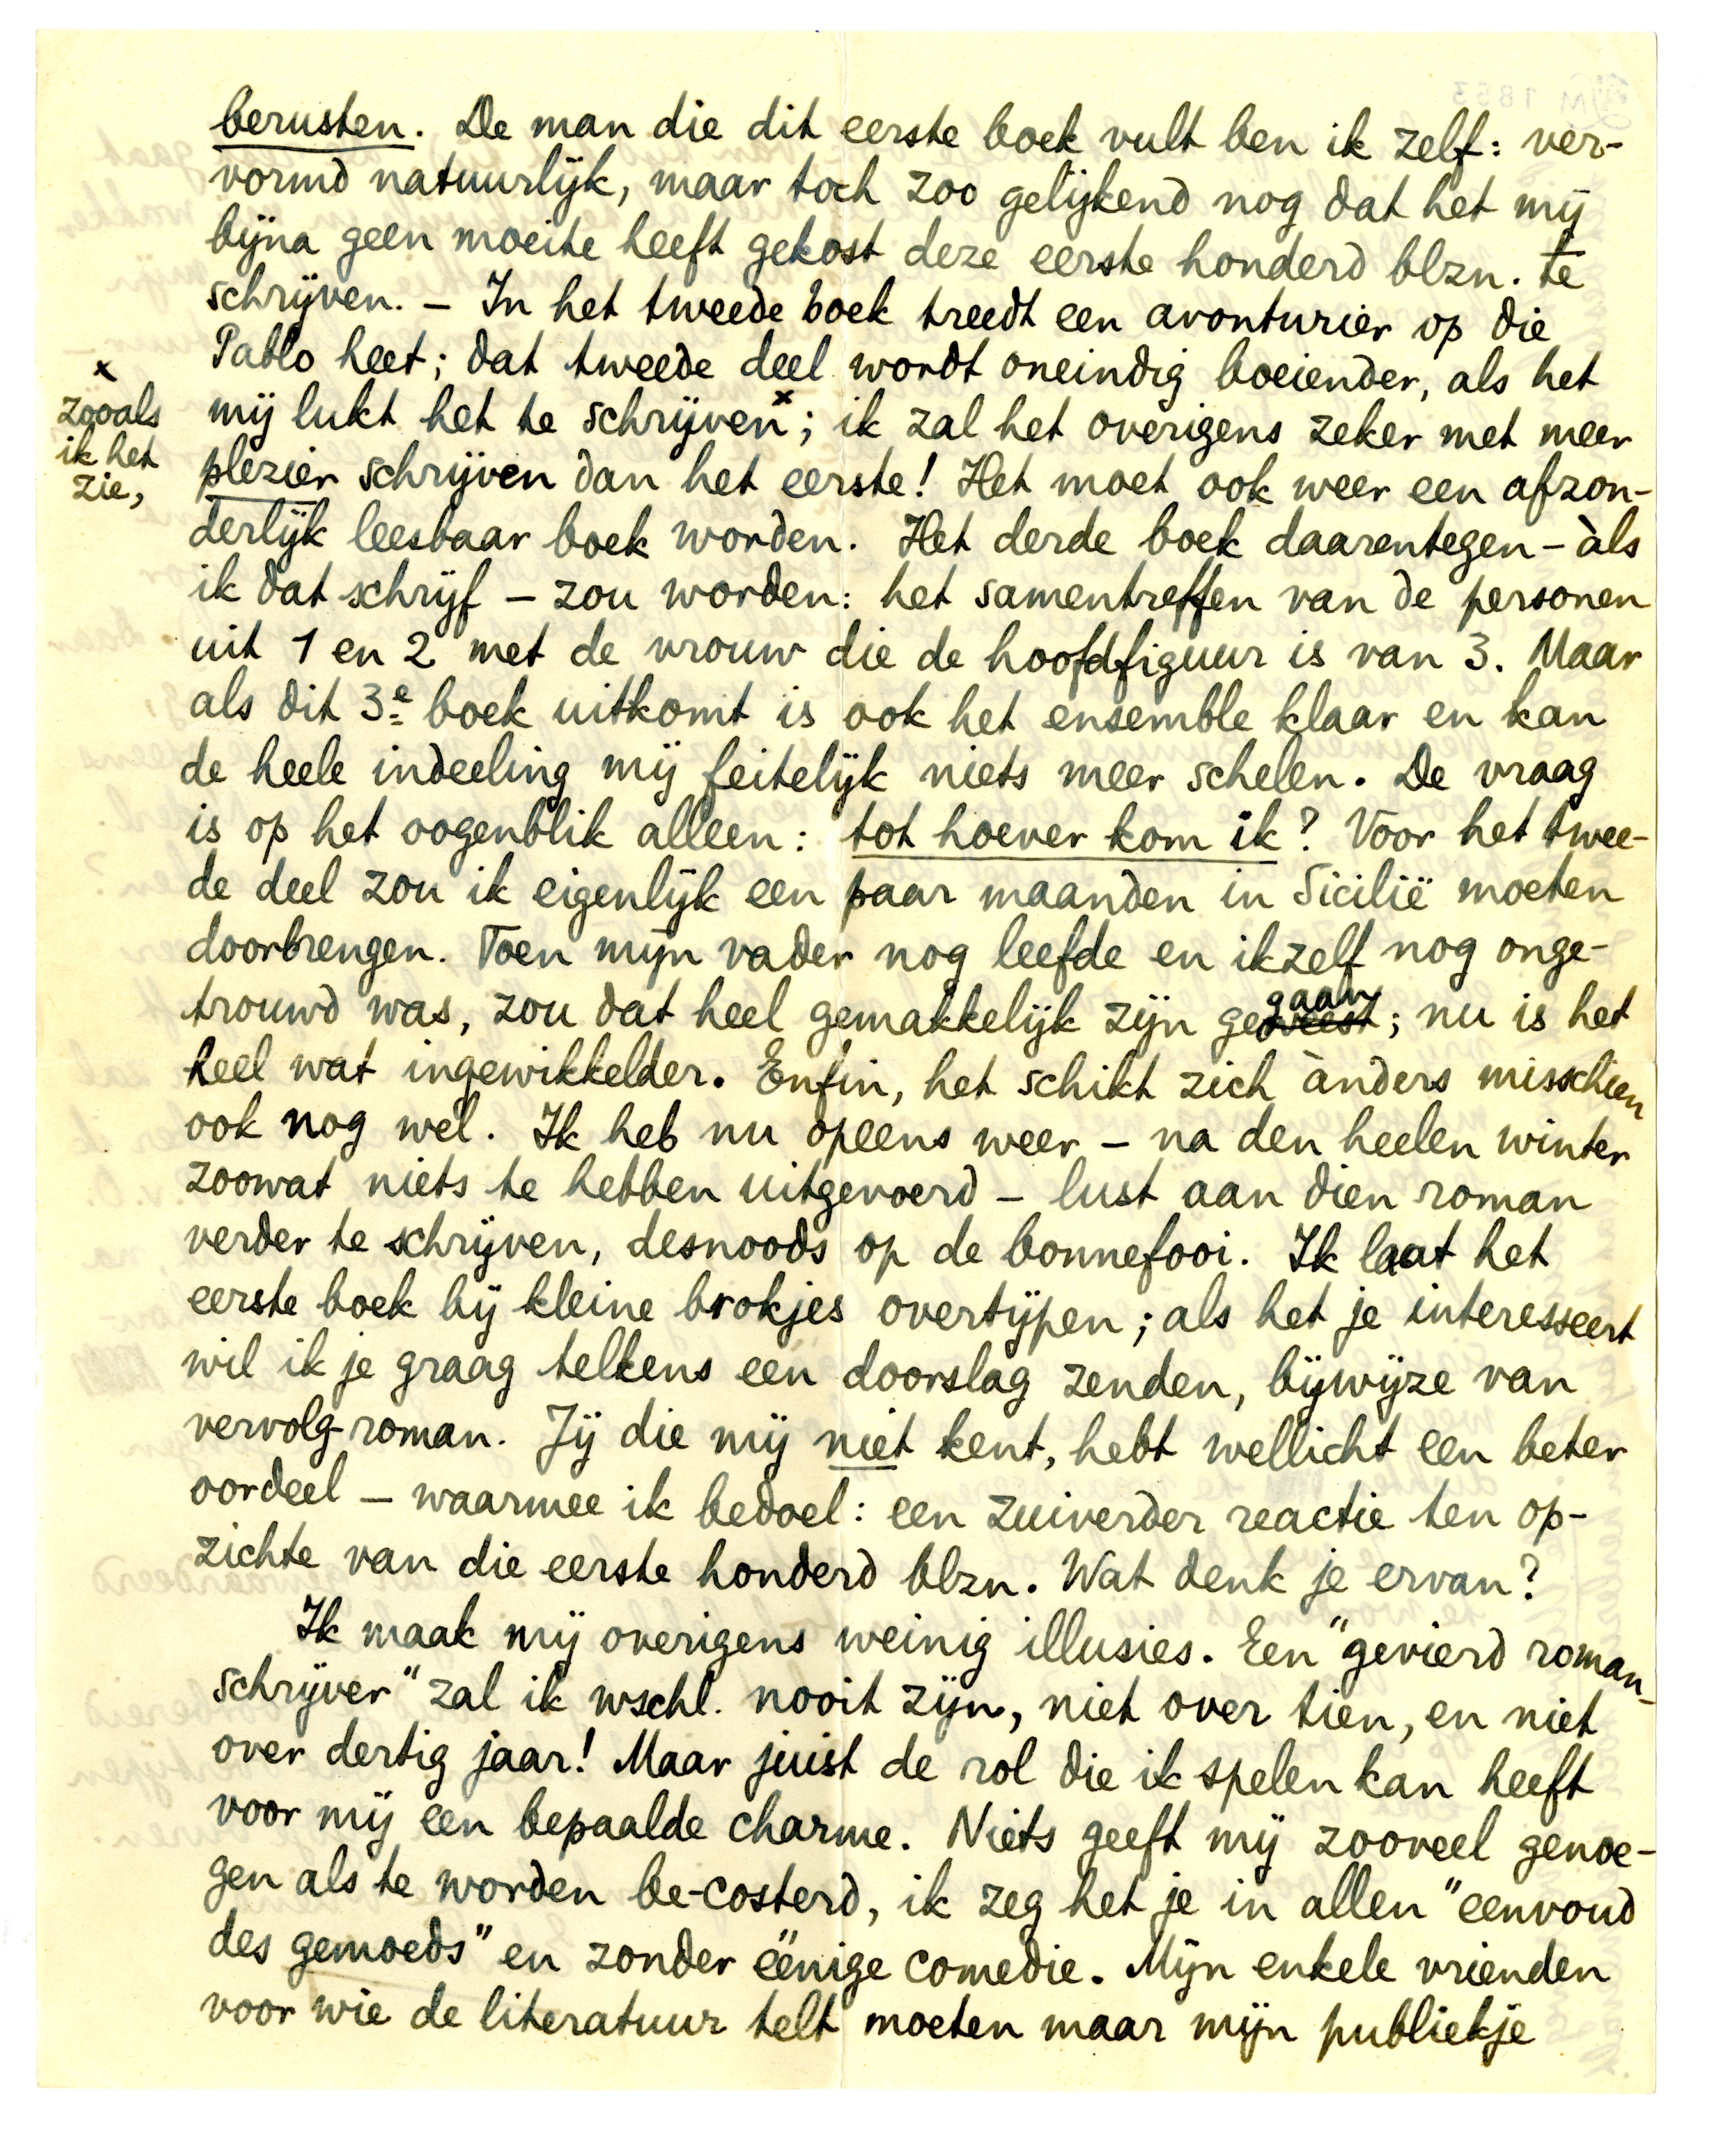 berusten. De man die dit eerste boek vult ben ik zelf: ver-
vormd natuurlijk, maar toch zoo gelijkend nog dat het mij
bijna geen moeite heeft gekost deze eerste honderd blzn. te
schrijven. – In het tweede boek treedt een avonturier op die
Pablo heet; dat tweede deel wordt oneindig boeiender, als het
mij lukt het te schrijven x; ik zal het overigens zeker met meer
x
zooals
ik het
zie,
plezier schrijven dan het eerste! Het moet ook weer een afzon-
derlijk leesbaar boek worden. Het derde boek daarentegen – àls
ik dat schrijf – zou worden: het samentreffen van de personen
uit 1 en 2 met de vrouw die de hoofdfiguur is van 3. Maar
als dit 3e boek uitkomt is ook het ensemble klaar en kan
de heele indeeling mij feitelijk niets meer schelen. De vraag
is op het oogenblik alleen: tot hoever kom ik? Voor het twee-
de deel zou ik eigenlijk een paar maanden in Sicilië moeten
doorbrengen. Toen mijn vader nog leefde en ikzelf nog onge-
trouwd was, zou dat heel gemakkelijk zijn geweest gaan; nu is het
heel wat ingewikkelder. Enfin, het schikt zich ànders misschien
ook nog wel. Ik heb nu opeens weer – na den heelen winter
zoowat niets te hebben uitgevoerd – lust aan dien roman
verder te schrijven, desnoods op de bonnefooi. Ik laat het
eerste boek bij kleine brokjes overtijpen; als het je interesseert
wil ik je graag telkens een doorslag zenden, bijwijze van
vervolg-roman. Jij die mij niet kent, hebt wellicht een beter
oordeel – waarmee ik bedoel: een zuiverder reactie ten op-
zichte van die eerste honderd blzn. Wat denk je ervan?
Ik maak mij overigens weinig illusies. Een "gevierd roman-
schrijver" zal ik wschl. nooit zijn, niet over tien, en niet
over dertig jaar! Maar juist de rol die ik spelen kan heeft
voor mij een bepaalde charme. Niets geeft mij zooveel genoe-
gen als te worden be-costerd, ik zeg het je in allen "eenvoud
des gemoeds" en zonder ëenige comedie. Mijn enkele vrienden
voor wie de literatuur telt moeten maar mijn publiekje